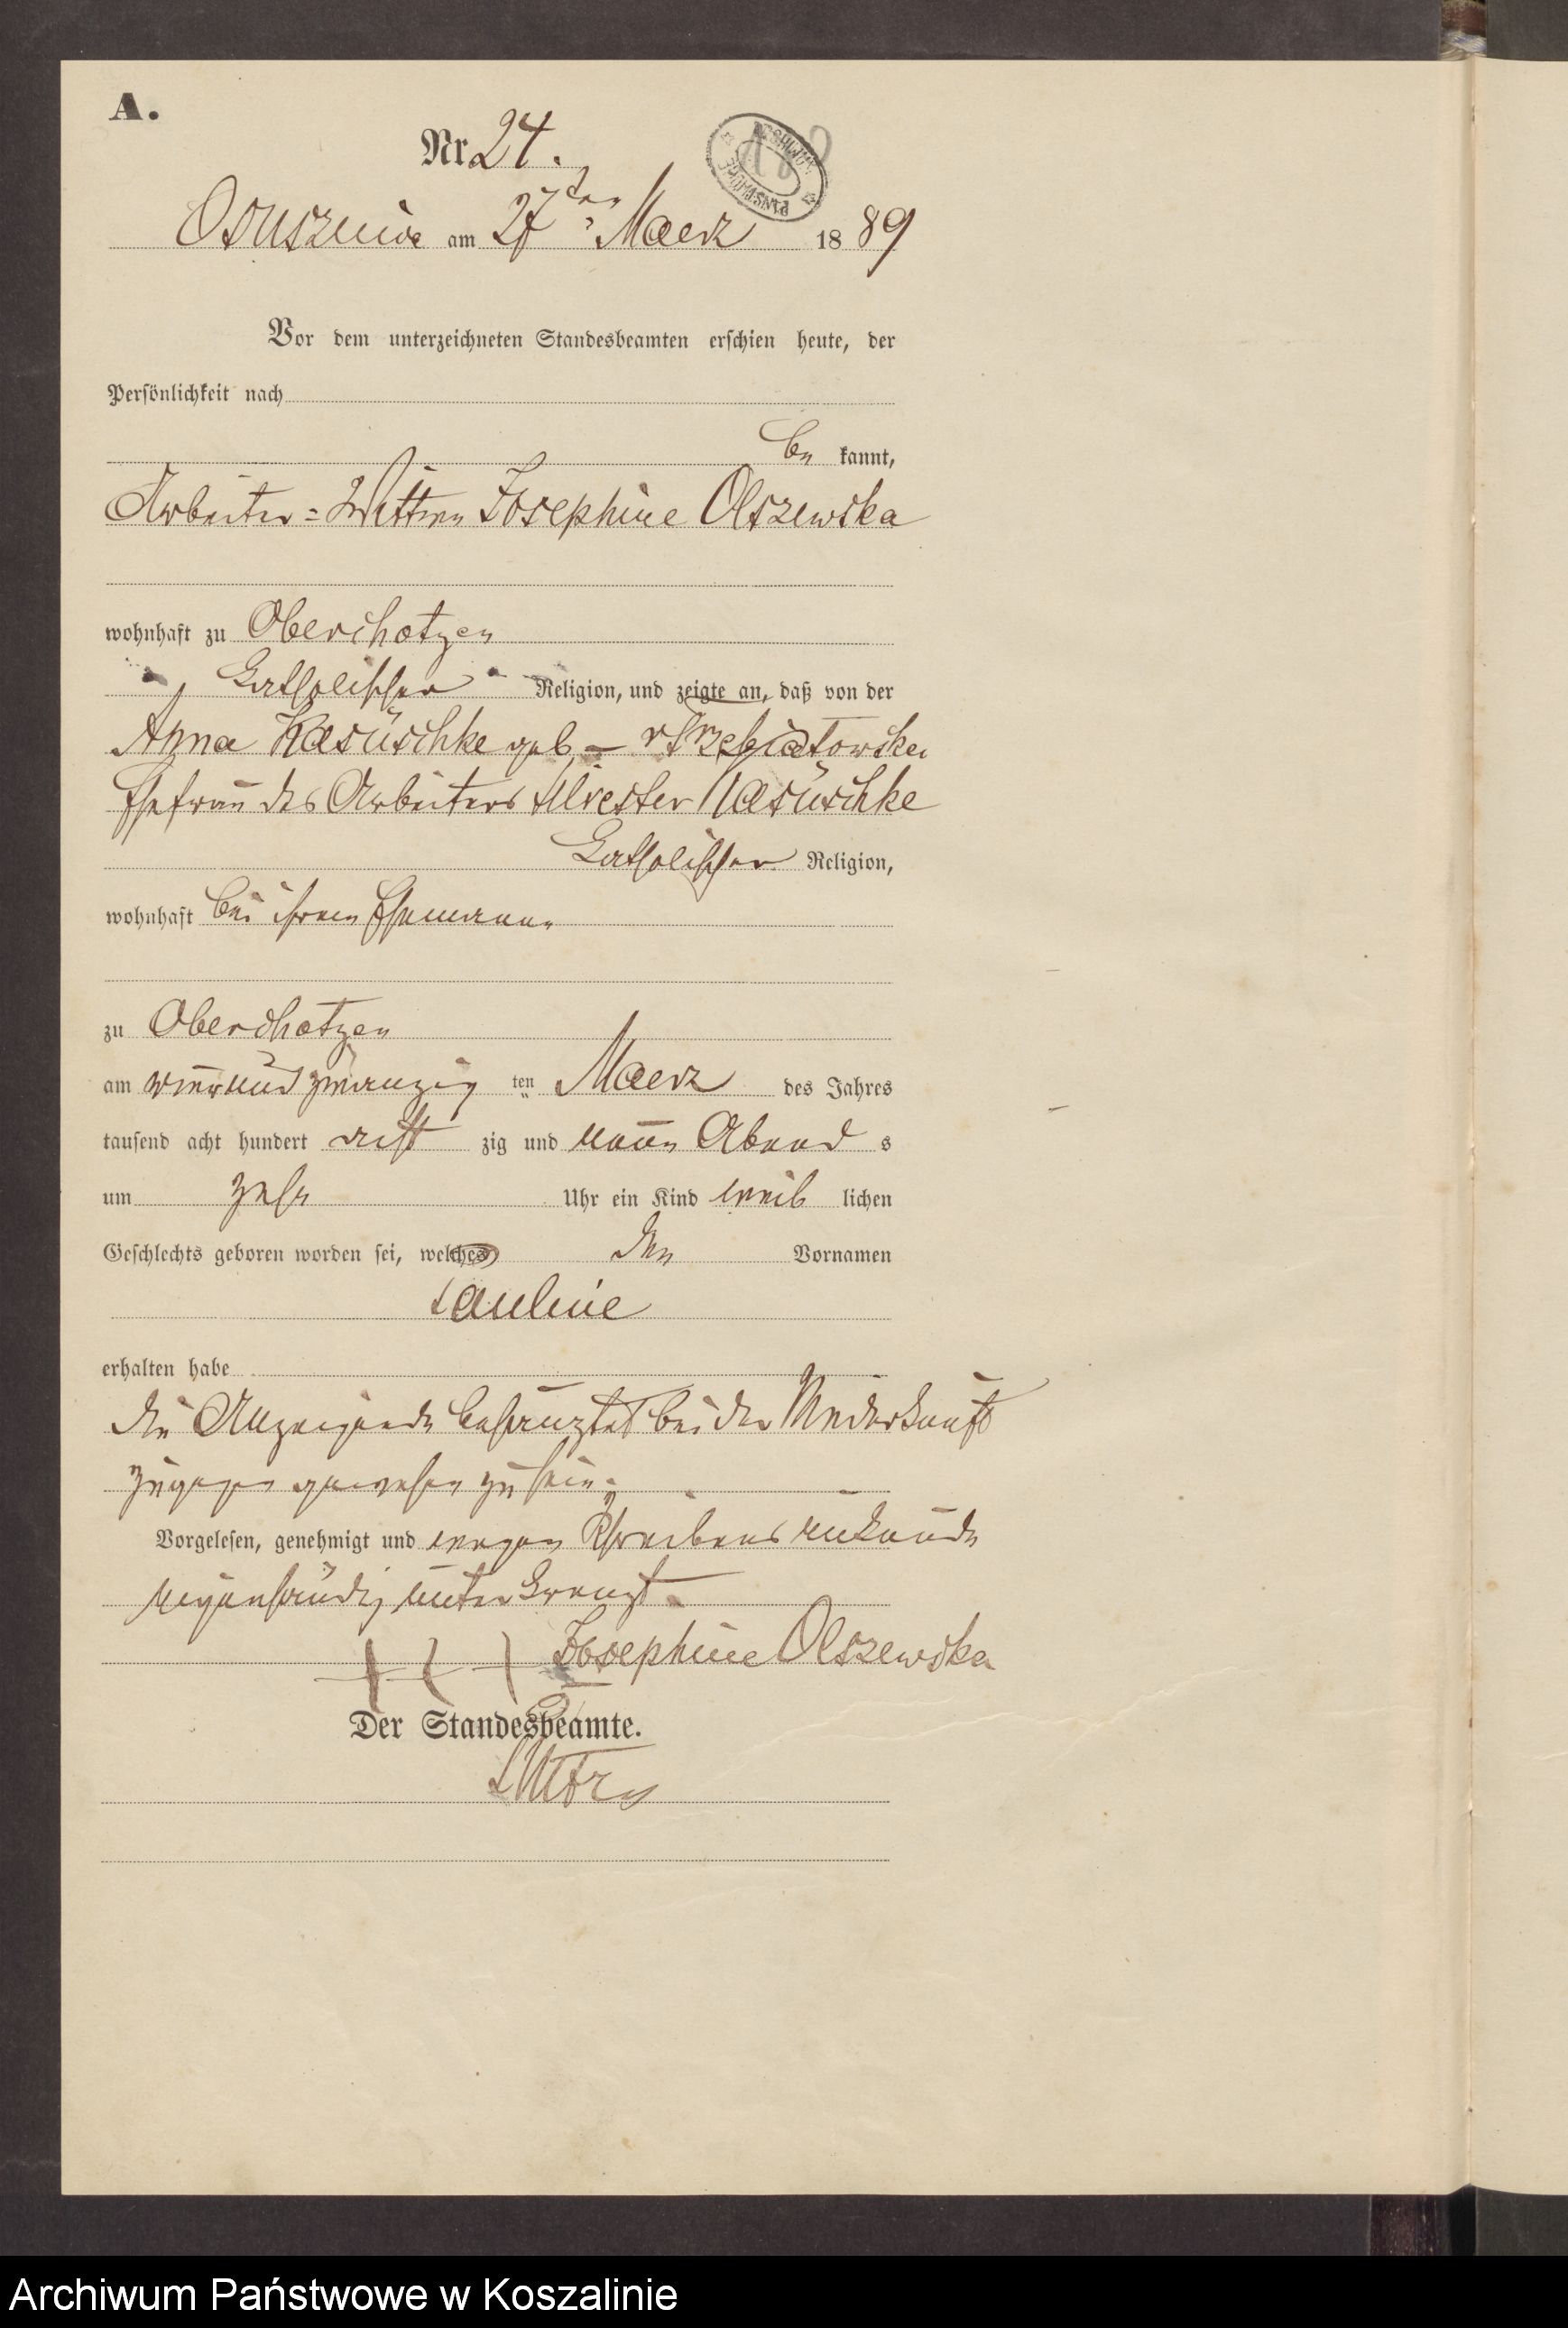 A.
Nr. 24.
Osusznica am 27ten Maerz 1889
Vor dem unterzeichneten Standesbeamten erschien heute, der
Persönlichkeit nach
be kannt,
Arbeiter=Wittwe Josephine Olszewska
wohnhaft zu Oberchotzen
katholischer Religion, und zeigte an, daß von der
Anna Kasüschke geb.
Ehefrau des Arbeiters Silvester Kasüschke
katholischer Religion,
wohnhaft bei ihrem Ehemanne
zu Oberchotzen
am vierundzwanzig ten Maerz des Jahres
tausend acht hundert acht zig und neun Abend s
um zehn Uhr ein Kind weib lichen
Geschlechts geboren worden sei, welches den Vornamen
Pauline
erhalten habe
die Anzeigende behauptet bei der Niederkunft
zugegen gewesen zu sein.
Vorgelesen, genehmigt und wegen Schreibens unkunde
eigenhändig unterkreuzt.
+++ Josephine Olszewska
Der Standesbeamte.
Archiwum Państwowe w Koszalinie